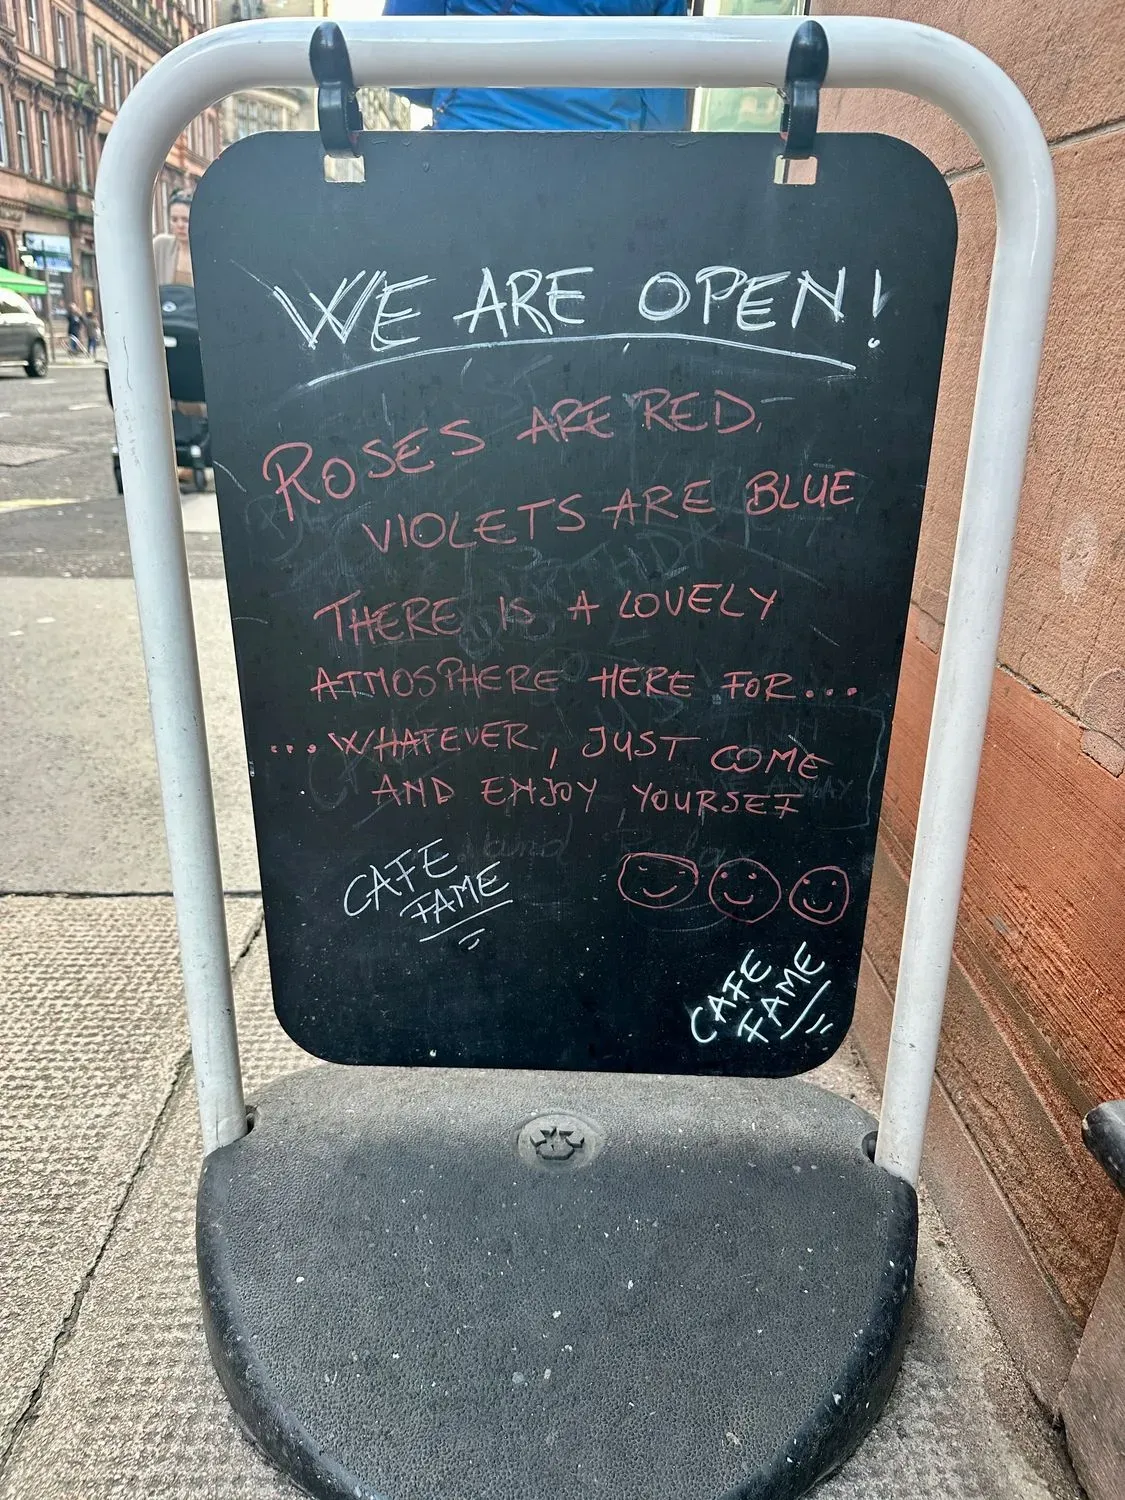 WE ARE OPEN!
ROSES ARE RED,
VIOLETS ARE BLUE
THERE IS A LOVELY
ATMOSPHERE HERE FOR...
...WHATEVER, JUST COME
AND ENJOY YOURSEF
CAFE
FAME
CAFE
FAME